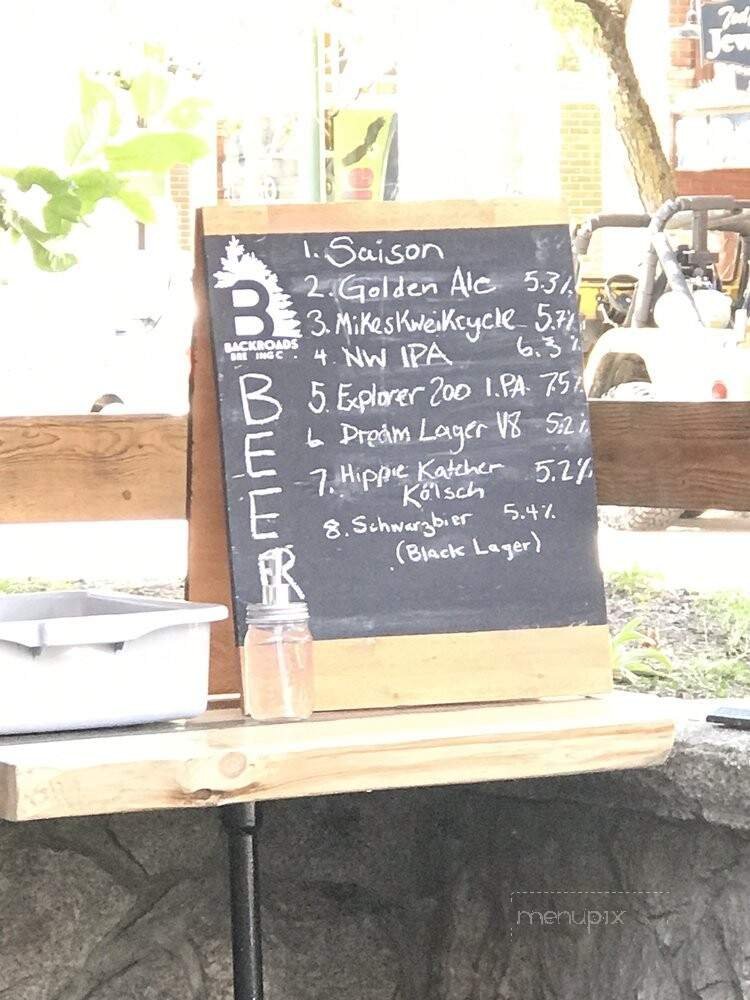 1. Saison
2. Golden Ale 5.3%
3. MikesKweiKcycle 5.7%
4. NW IPA 6.3%
5. Explorer 200 I.PA. 7.5%
6 Dream Lager V8 5.2%
7. Hippie Katcher 5.2%
Kölsch
8. Schwarzbier 5.4%
(Black Lager)
B
BACKROADS
BEER
menupix